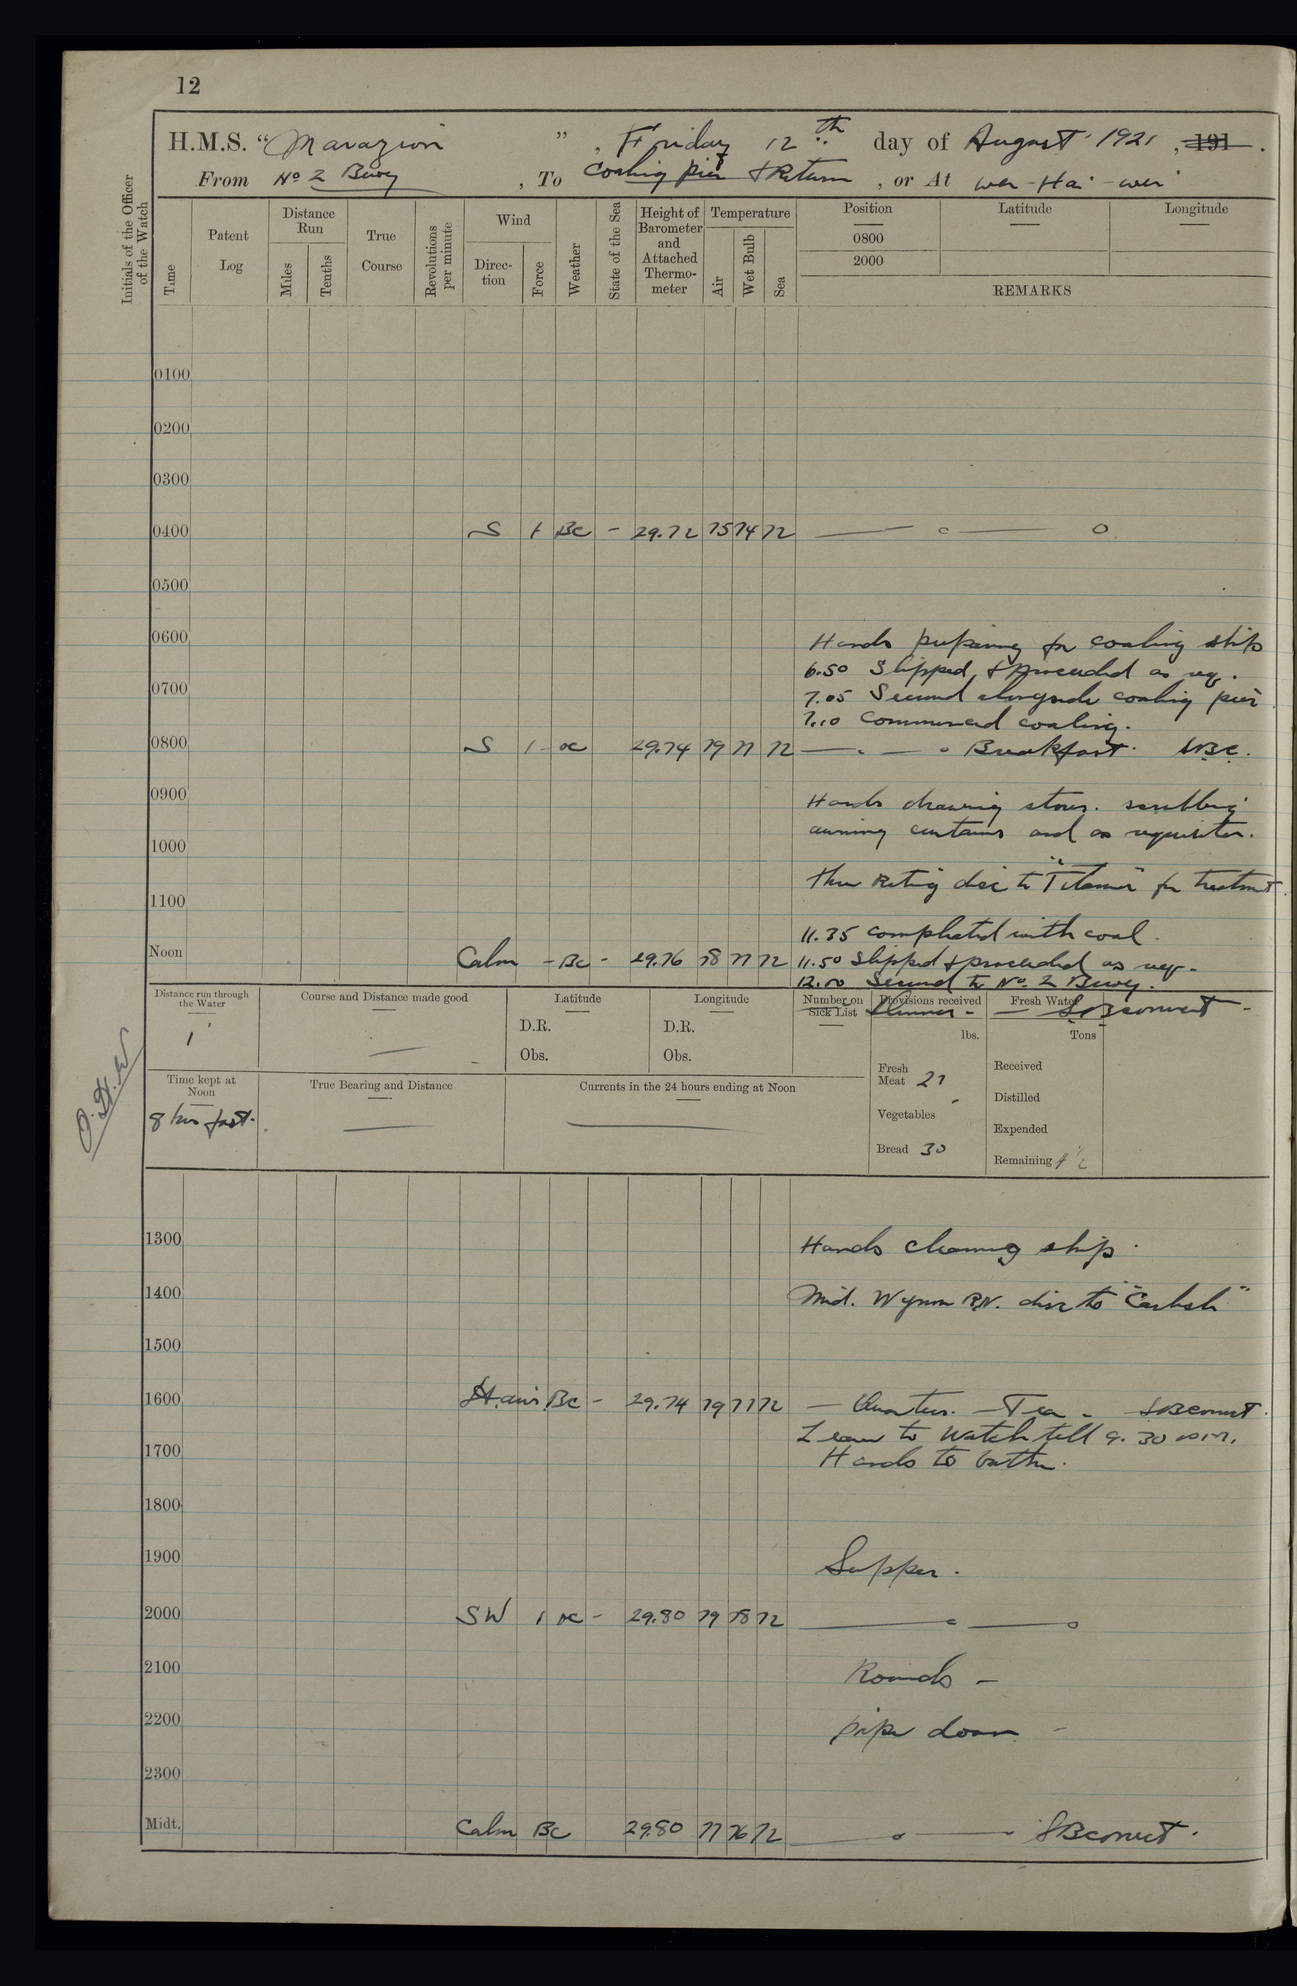 12
H.M.S. "Marazion", Friday 12th day of August 1921, 191.
From No 2 Buoy, To Coaling pier & Return, or At Wei-Hai-Wei
Initials of the Officer of the Watch
Time
Patent Log
Distance Run
Miles
Tenths
True Course
Revolutions per minute
Wind
Direction
Force
Weather
State of the Sea
Height of Barometer and Attached Thermometer
Temperature
Air
Wet Bulb
Sea
Position
0800
2000
Latitude
Longitude
REMARKS
0100
0200
0300
0400 S 1 BC - 29.72 75 74 72
0500
0600
Hands preparing for coaling ship
6.50 Slipped & proceeded as req.
0700
7.05 Secured alongside coaling pier
7.10 Commenced coaling.
0800 S 1 - oc 29.74 79 77 72 Breakfast. SBC.
0900
Hands drawing stores. scrubbing
awning curtains and as requisite.
1000
Three Rating disc to "Titania" for treatment
1100
11.35 completed with coal.
Noon Calm - BC - 29.76 78 77 72 11.50 Slipped & proceeded as req.
12.00 Secured to No. 2 Buoy.
Dinner -
Distance run through the Water
1'
Course and Distance made good
Latitude
D.R.
Obs.
Longitude
D.R.
Obs.
Number on Sick List
Provisions received
lbs.
Fresh Meat 27
Vegetables -
Bread 30
Fresh Water
Tons
Received
Distilled
Expended
Remaining 4½
Time kept at Noon
8 hrs fast.
True Bearing and Distance
Currents in the 24 hours ending at Noon
1300
Hands cleaning ship.
1400
Mid. Wynn R.N. disc to "Carlisle"
1500
1600 Lt. airs BC - 29.74 79 77 72 - Quarters. - Tea -
Leave to Watch till 9.30
1700
Hands to bathe.
1800
1900
Supper.
2000 SW 1 oc - 29.80 79 78 72
2100
Rounds -
2200
pipe down -
2300
Midt. Calm BC 29.80 77 76 72